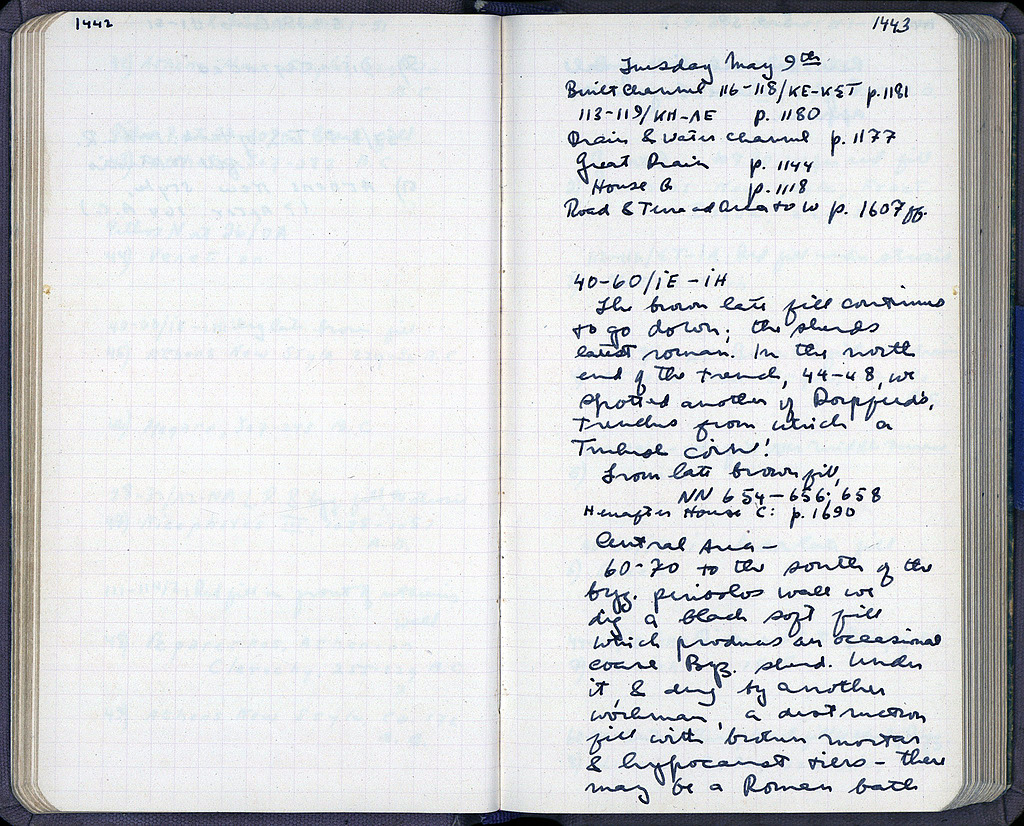 1442
1443
Tuesday May 9th
Built Channel 116-118/KE-KST p. 1181
113-119/KH-ΛE p. 1180
Drain & Water Channel p. 1177
Great Drain p. 1144
House B p. 1118
Road & Area to W p. 1607 ff.
40-60/iE-iH
The brown late fill continues
to go down; the sherds
latest roman. In the north
end of the trench, 44-48, we
spotted another of Dorpfeld's,
trenches from which a
Turkish coin!
From late brown fill,
NN 654-656; 658
Hereafter House C: p. 1690
Central Area -
60-70 to the south of the
byz. peribolos wall we
dig a black soft fill
which produces an occasional
coarse Byz. sherd. Under
it, & dug by another
workman, a destruction
fill with broken mortar
& hypocaust tiles - there
may be a Roman bath